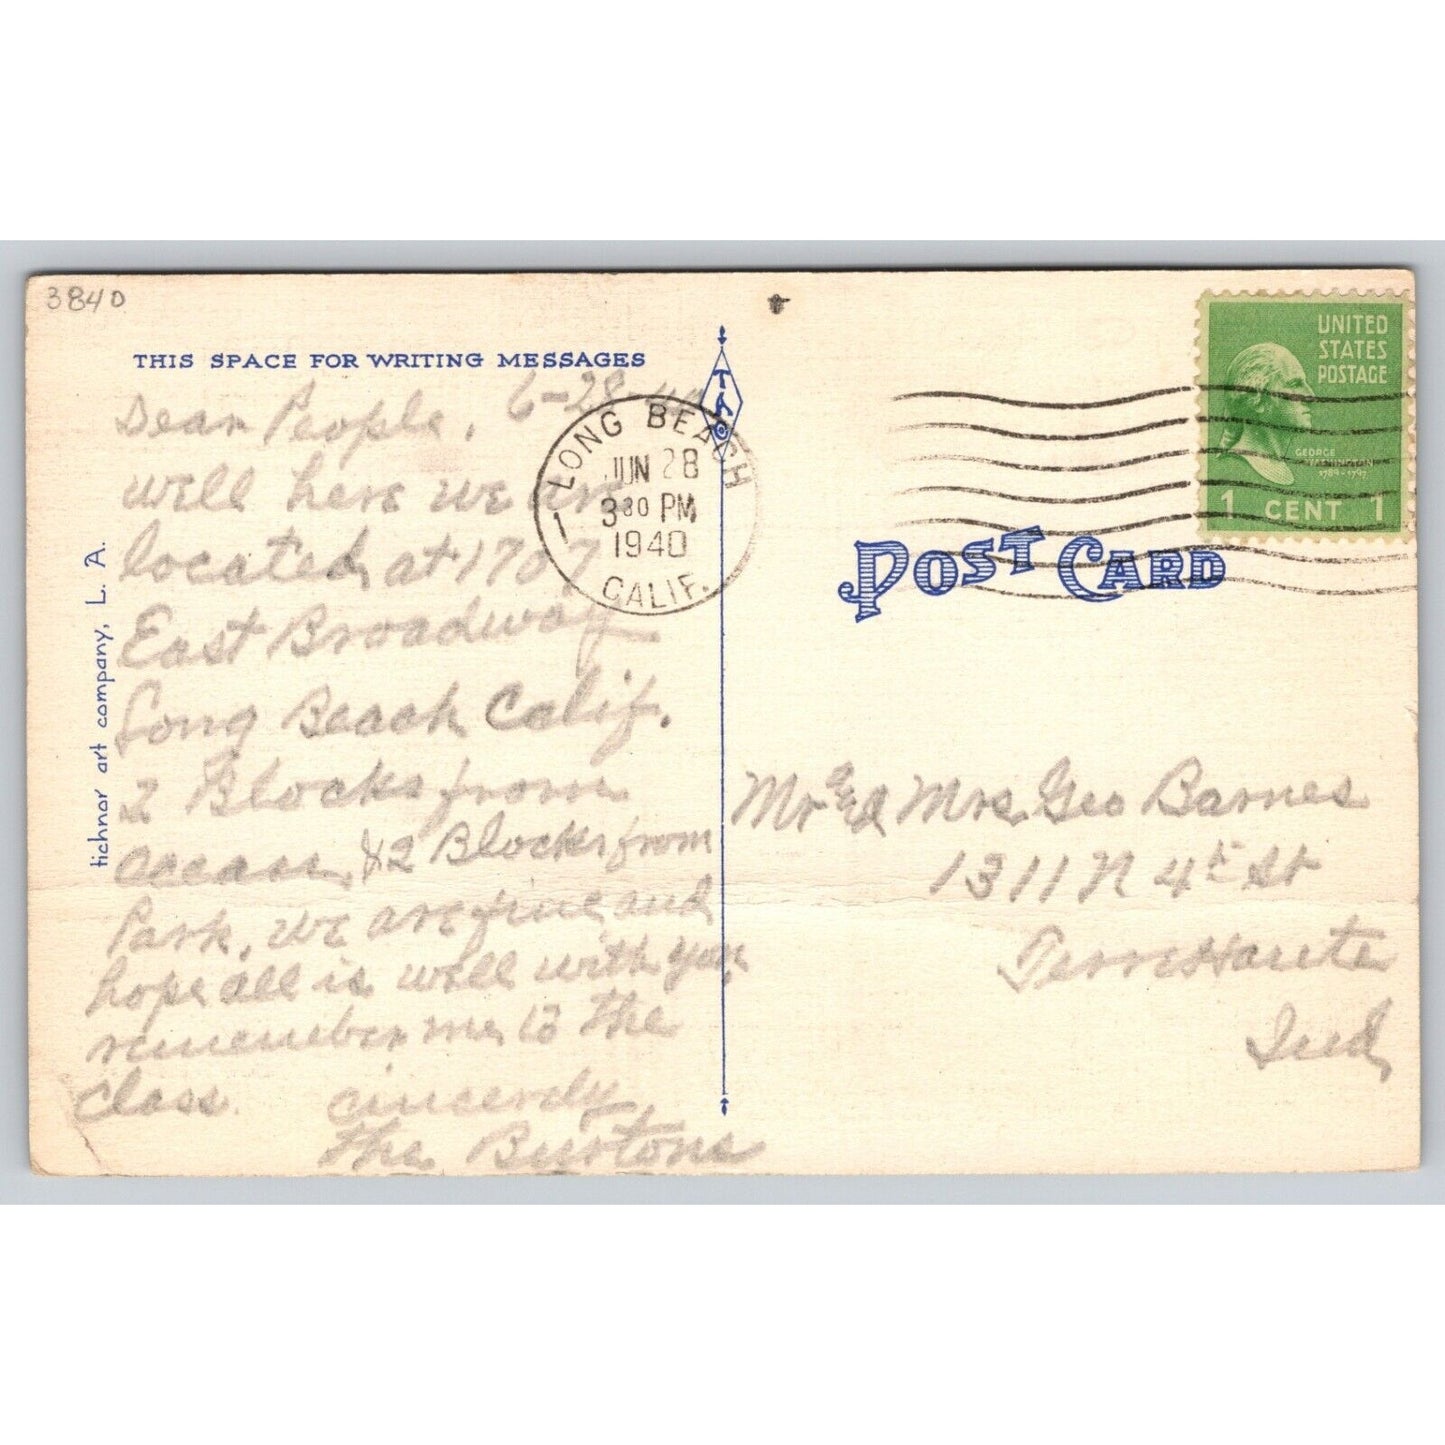 3840
THIS SPACE FOR WRITING MESSAGES
Dear People, 6-28-40
well here we are
located at 1707
East Broadway
Long Beach Calif.
2 Blocks from
occean, & 2 Blocks from
Park, we are fine and
hope all is well with you,
remember me to the
class. sincerely,
the Burtons
tichnor art company, L. A.
TAC
LONG BEACH
JUN 28
3 30 PM
1940
CALIF.
1
UNITED
STATES
POSTAGE
GEORGE
WASHINGTON
1789-1797
1 CENT 1
POST CARD
Mr and Mrs. Geo Barnes
1311 N 4th St
Terre Haute
Ind,